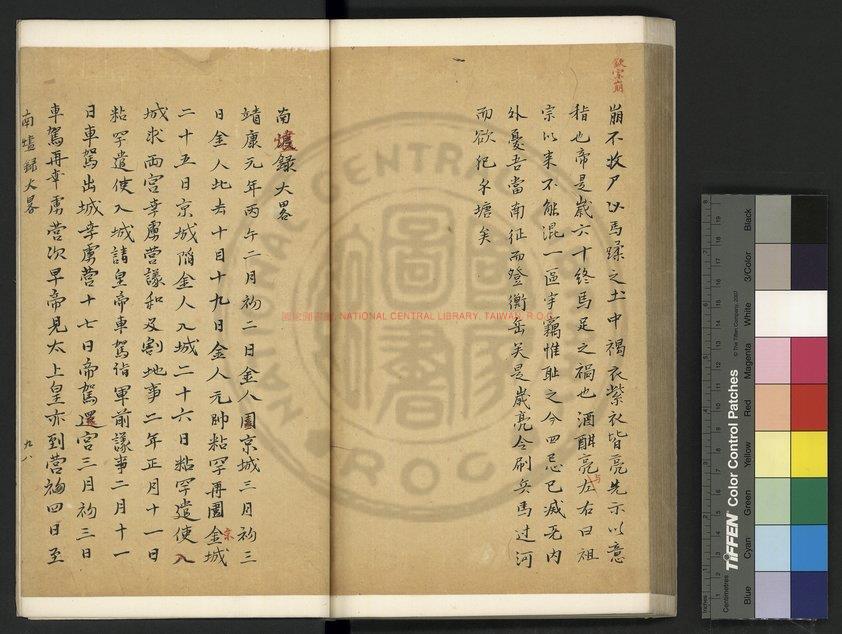 欽宗崩
崩不收尸以馬蹂之土中褐衣紫衣皆亮先示以意
稽也帝是歲六十終馬足之禍也酒酣亮与左右曰祖
宗以来不能混一區宇竊惟恥之今四忌已滅无内
外憂吾當南征而登衡岳矣是歲亮令刷兵馬过河
而欲犯矣
南燼録大畧
靖康元年丙午二月初二日金人圍京城三月初三
日金人北去十月十九日金人元帥粘罕再圍京城
二十五日京城陷金人入城二十六日粘罕遣使入
城求兩宫幸虜营議和及割地事二年正月十一日
粘罕遣使入城請皇帝車駕詣軍前議事二月十一
日車駕出城幸虜营十七日帝駕還宫三月初三日
車駕再幸虜营次早帝見太上皇亦到营初四日至
南燼録大畧
九八
國家圖書館 NATIONAL CENTRAL LIBRARY, TAIWAN, R.O.C.
TIFFEN Color Control Patches
© The Tiffen Company, 2007
Blue
Cyan
Green
Yellow
Red
Magenta
White
3/Color
Black
Inches
Centimetres